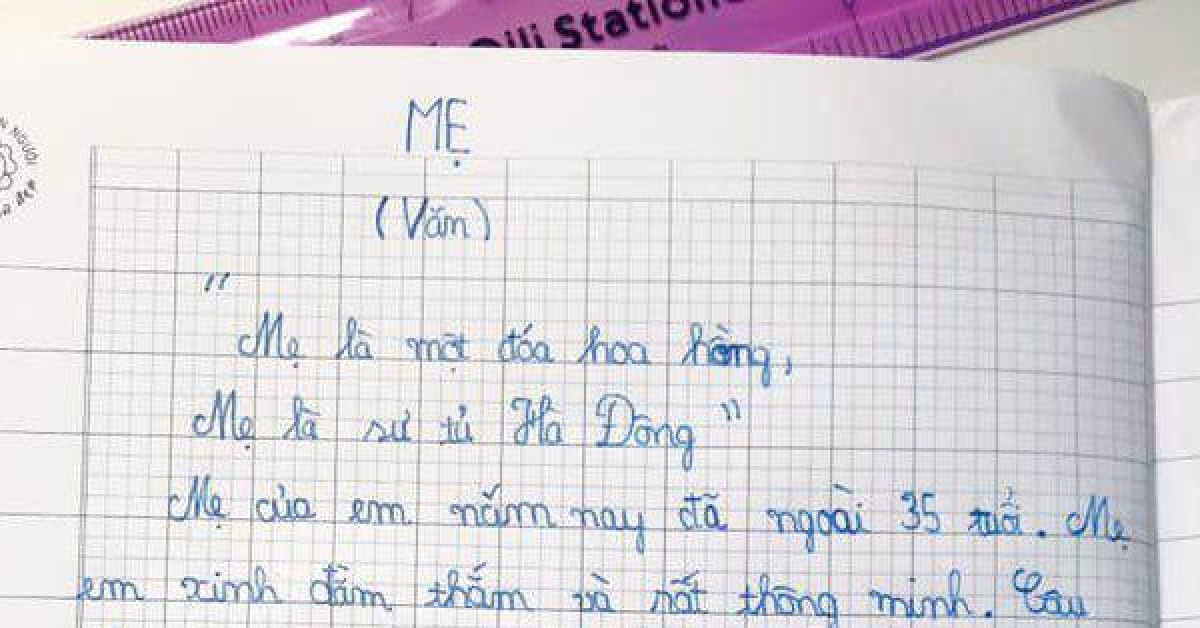 Dili Station
N NGƯỜI
ĐẸP
MẸ
(Văm)
"
Mẹ là một đóa hoa hồng,
Mẹ là sư tử Hà Đông"
Mẹ của em năm nay đã ngoài 35 tuổi. Mẹ
em xinh đằm thắm và rất thông minh. Câu